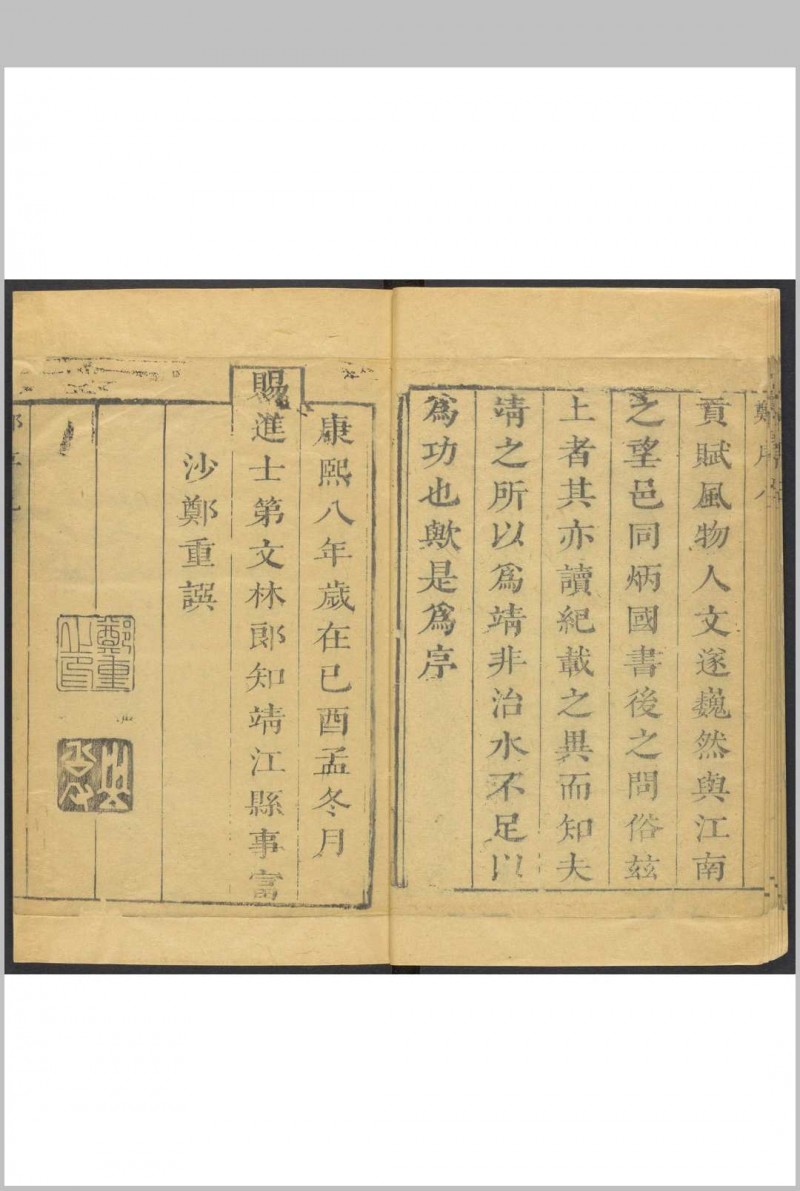 貢賦風物人文遂巍然與江南
之望邑同炳國書後之問俗兹
土者其亦讀紀載之異而知夫
靖之所以爲靖非治水不足以
爲功也歟是爲序
康熙八年歲在已酉孟冬月
賜進士第文林郎知靖江縣事富
沙鄭重譔
鄭重之印